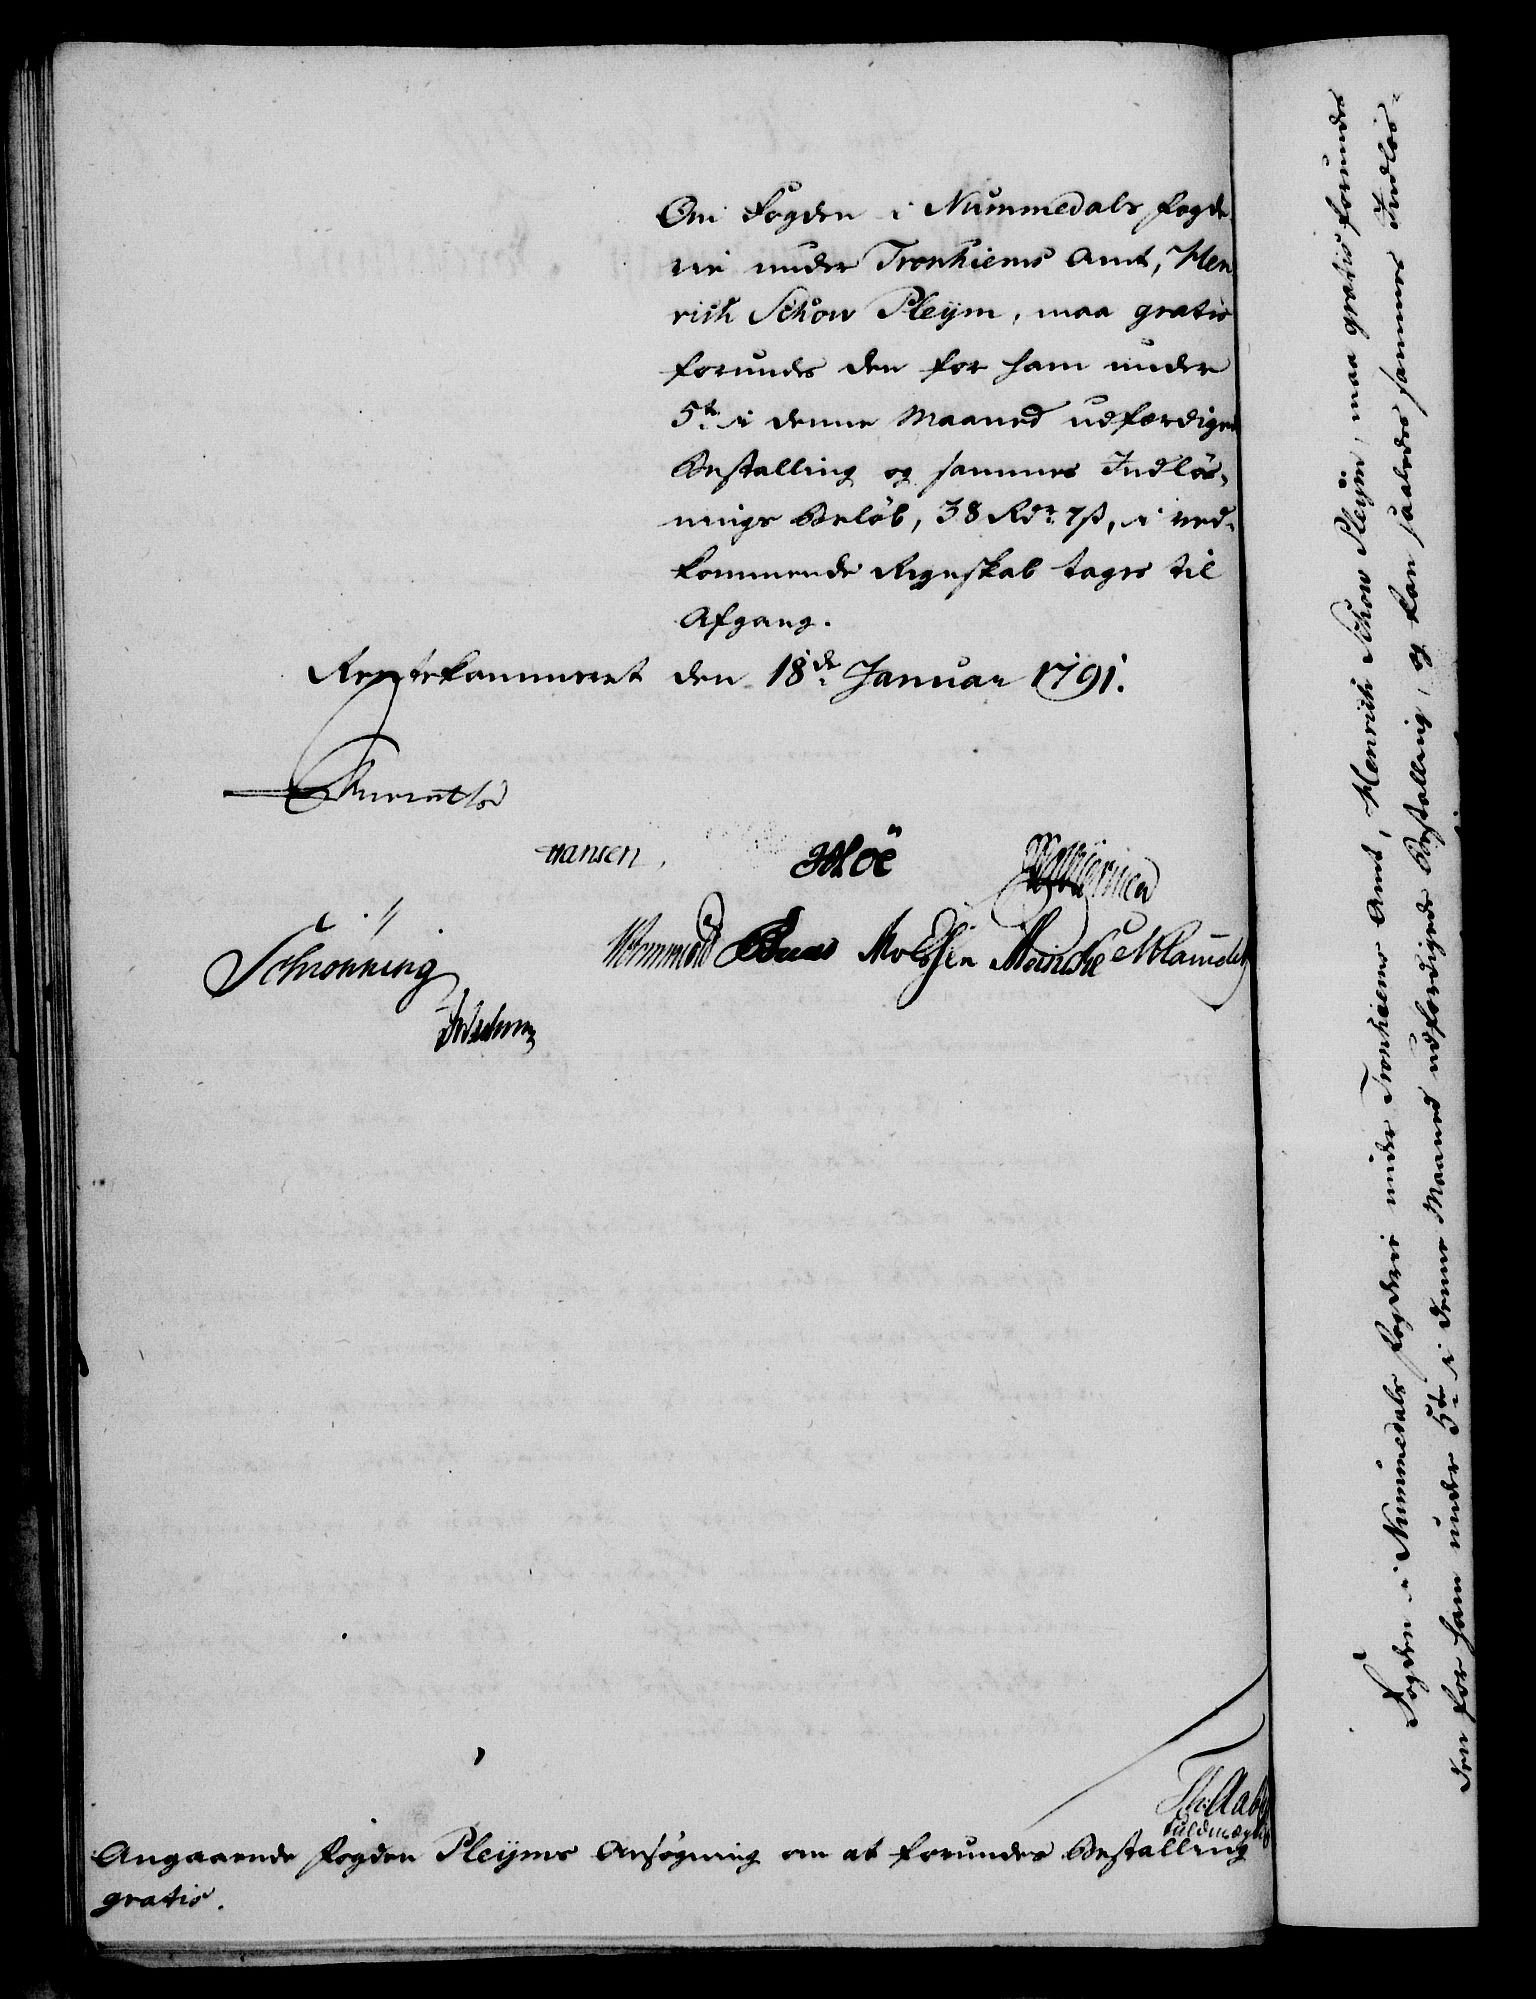 Om Fogden i Nummedals Fogde-
rie under Tronhiems Amt, Hen
rich Schow Pleÿm, maa gratis
forundes den for ham under
5te i denne Maaned udfærdigede
Bestalling og sammes Indløs-
nings Beløb, 38 Rdr 7 ß, i ved-
kommende Regnskab tages til
Afgang.
Rentekammeret den 18de Januar 1791.
Hansen.
Høë
Schrønning
Wormskiold
Meincke
Th: Aaby
Fuldmægtig
Angaaende Fogden Pleÿms Ansøgning om at forundes Bestalling
gratis.
Fogden i Nummedals Fogderie under Tronhiems Amt, Henrich Schow Pleÿm, maa gratis forundes
den for ham under 5te i denne Maaned udfærdigede Bestalling, og kan saaledes sammes Indløs-